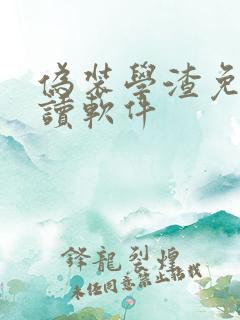 偽裝學渣免
讀軟件
鋒龍烈煌
未经同意禁止搭载